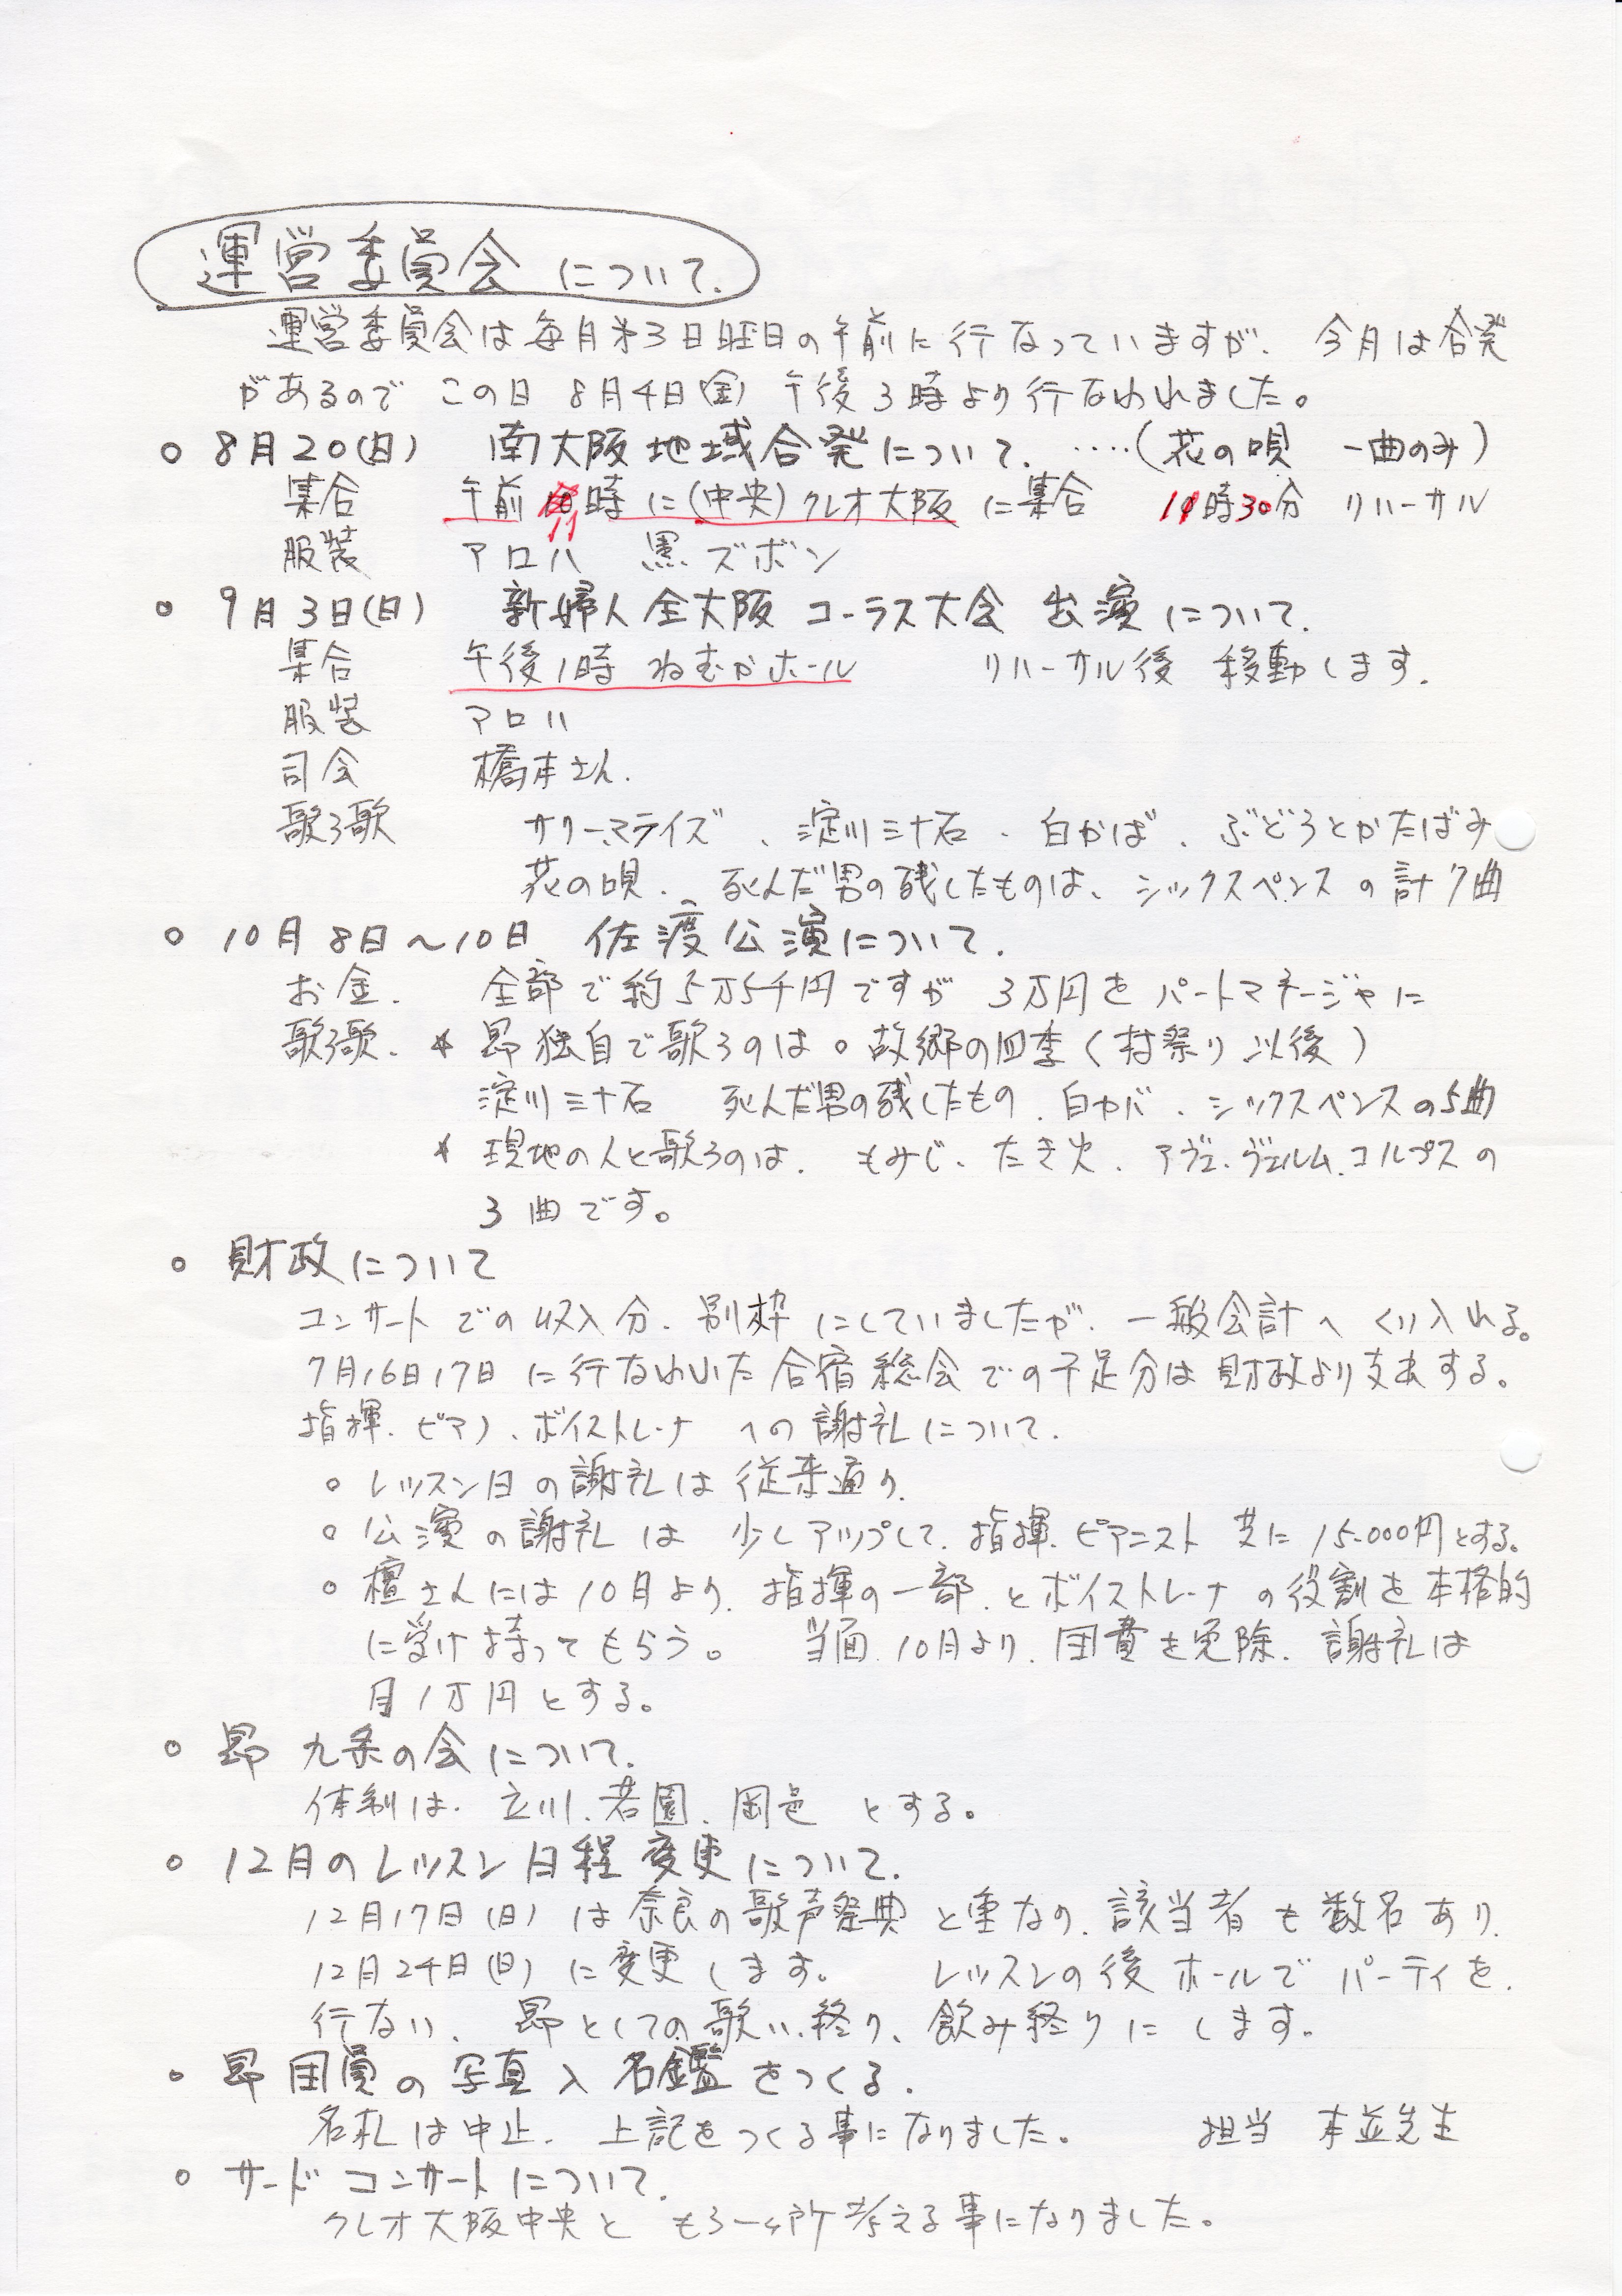 運営委員会について.
運営委員会は毎月第3日旺日の午前に行なっていますが、今月は合発
があるので この日 8月4日(金) 午後3時より行なわれました。
○ 8月20(日) 南大阪地域合発について. ‥‥(花の唄 一曲のみ)
集合 午前11時に(中央)クレオ大阪に集合 11時30分 リハーサル
服装 アロハ 黒ズボン
○ 9月3日(日) 新婦人全大阪コーラス大会 出演について.
集合 午後1時 ねむかホール リハーサル後 移動します.
服装 アロハ
司会 橋本さん.
歌う歌 サリーマライズ、淀川三十石、白かば、ぶどうとかたばみ
花の唄、死んだ男の残したものは、シックスペンスの計7曲
○ 10月8日〜10日 佐渡公演について.
お金. 全部で約5万5千円ですが 3万円をパートマネージャに
歌う歌. * 昴独自で歌うのは。故郷の四季(村祭り以後)
淀川三十石 死んだ男の残したもの、白カバ、シックスペンスの5曲
* 現地の人と歌うのは、もみじ、たき火、アヴェ・ヴェルム・コルプスの
3曲です。
○ 財政について
コンサートでの収入分、別枠にしていましたが、一般会計へくり入れる。
7月16日17日に行なわれた合宿総会での不足分は財政より支出する。
指揮、ピアノ、ボイストレーナへの謝礼について.
○ レッスン日の謝礼は従来通り.
○ 公演の謝礼は 少しアップして、指揮、ピアニスト 共に15.000円とする。
○ 檀さんには10月より、指揮の一部、とボイストレーナの役割を本格的
に受け持ってもらう。 当面、10月より、団費を免除、謝礼は
月1万円とする。
○ 昴 九条の会について.
体制は、立川、若園、岡邑とする。
○ 12月のレッスン日程変更について.
12月17日(日)は奈良の歌声祭典と重なり、該当者も数名あり、
12月24日(日)に変更します。 レッスンの後ホールでパーティを、
行ない、昴としての歌い終り、飲み終りにします。
○ 昴団員の写真入名鑑をつくる.
名札は中止、上記をつくる事になりました。 担当 本並先生
○ サードコンサートについて.
クレオ大阪中央と もう一ヶ所考える事になりました。